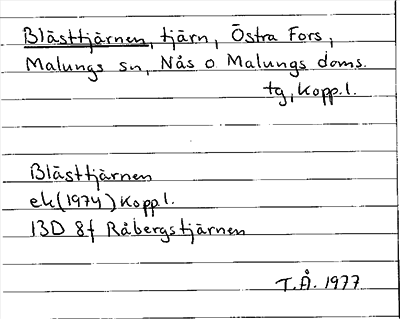 Blästtjärnen, tjärn, Östra Fors,
Malungs sn, Nås o Malungs doms.
tg, Kopp.l.
Blästtjärnen
ek (1974) Kopp.l.
13D 8f Råbergstjärnen
T.Å. 1977